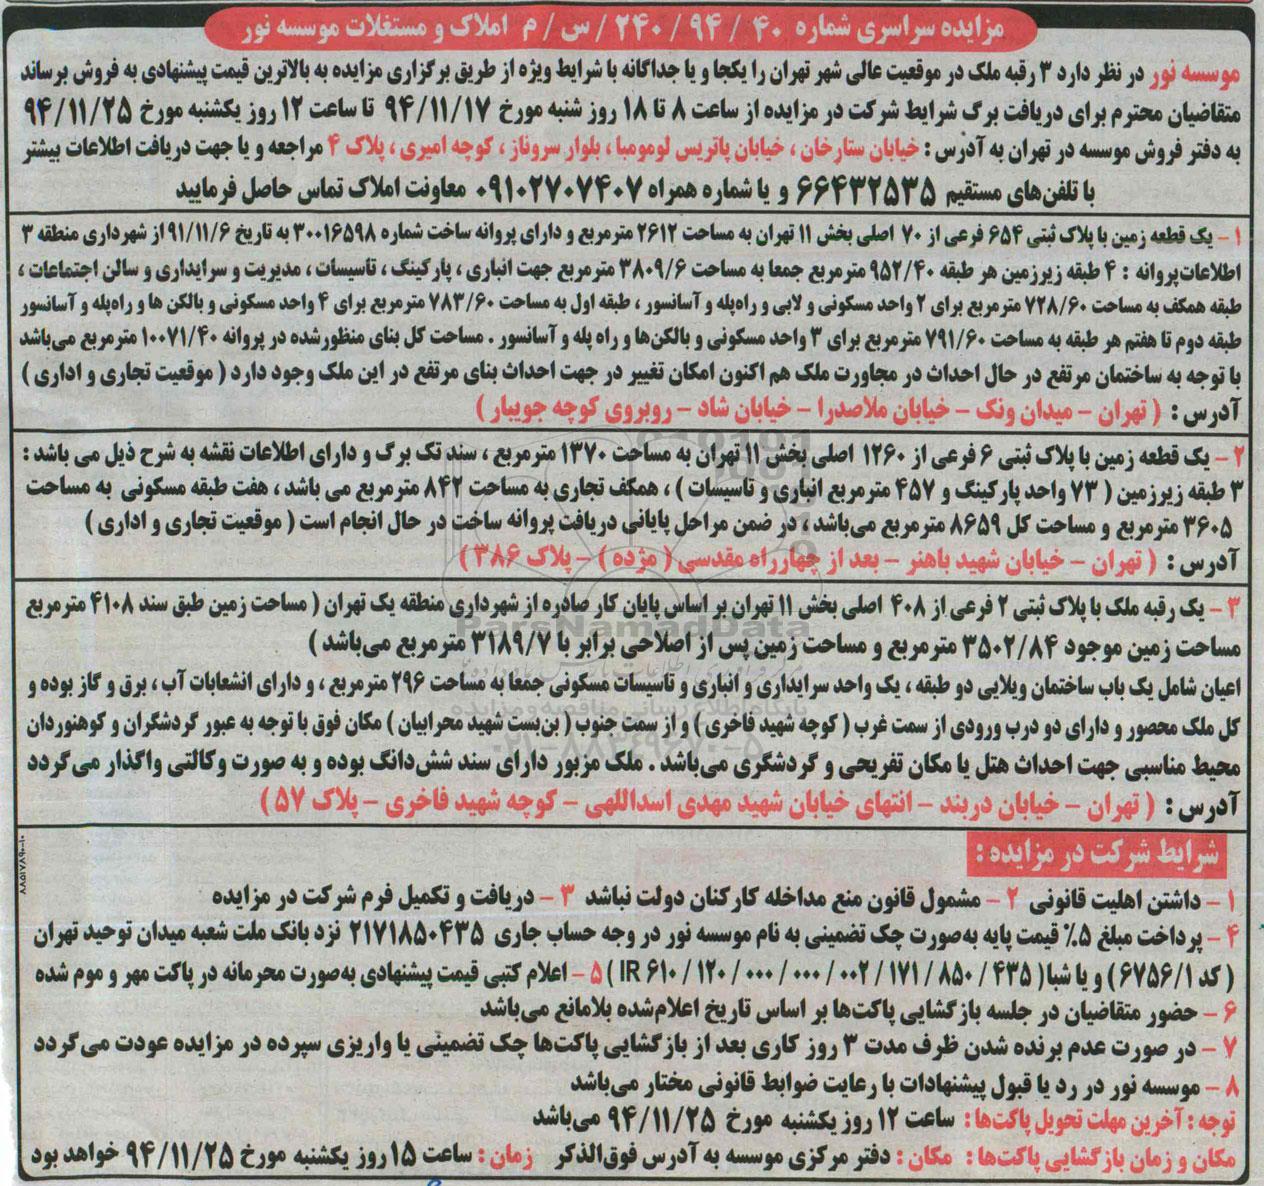 مزایده سراسری شماره ۴۰ / ۹۴ / ۲۴۰ / س / م املاک و مستغلات موسسه نور
موسسه نور در نظر دارد ۳ رقبه ملک در موقعیت عالی شهر تهران را یکجا و یا جداگانه با شرایط ویژه از طریق برگزاری مزایده به بالاترین قیمت پیشنهادی به فروش برساند
متقاضیان محترم برای دریافت برگ شرایط شرکت در مزایده از ساعت ۸ تا ۱۸ روز شنبه مورخ ۹۴/۱۱/۱۷ تا ساعت ۱۲ روز یکشنبه مورخ ۹۴/۱۱/۲۵
به دفتر فروش موسسه در تهران به آدرس : خیابان ستارخان ، خیابان پاتریس لومومبا ، بلوار سروناز ، کوچه امیری ، پلاک ۴ مراجعه و یا جهت دریافت اطلاعات بیشتر
با تلفن‌های مستقیم ۶۶۴۳۲۵۳۵ و یا شماره همراه ۰۹۱۰۲۷۰۷۴۰۷ معاونت املاک تماس حاصل فرمایید
۱ - یک قطعه زمین با پلاک ثبتی ۶۵۴ فرعی از ۷۰ اصلی بخش ۱۱ تهران به مساحت ۲۶۱۲ مترمربع و دارای پروانه ساخت شماره ۳۰۰۱۶۵۹۸ به تاریخ ۹۱/۱۱/۶ از شهرداری منطقه ۳
اطلاعات‌پروانه : ۴ طبقه زیرزمین هر طبقه ۹۵۲/۴۰ مترمربع جمعا به مساحت ۳۸۰۹/۶ مترمربع جهت انباری ، پارکینگ ، تاسیسات ، مدیریت و سرایداری و سالن اجتماعات ،
طبقه همکف به مساحت ۷۲۸/۶۰ مترمربع برای ۲ واحد مسکونی و لابی و راه‌پله و آسانسور ، طبقه اول به مساحت ۷۸۳/۶۰ مترمربع برای ۴ واحد مسکونی و بالکن ها و راه‌پله و آسانسور
طبقه دوم تا هفتم هر طبقه به مساحت ۷۹۱/۶۰ مترمربع برای ۳ واحد مسکونی و بالکن‌ها و راه پله و آسانسور . مساحت کل بنای منظورشده در پروانه ۱۰۰۷۱/۴۰ مترمربع می‌باشد
با توجه به ساختمان مرتفع در حال احداث در مجاورت ملک هم اکنون امکان تغییر در جهت احداث بنای مرتفع در این ملک وجود دارد ( موقعیت تجاری و اداری )
آدرس : ( تهران - میدان ونک - خیابان ملاصدرا - خیابان شاد - روبروی کوچه جویبار )
۲ - یک قطعه زمین با پلاک ثبتی ۶ فرعی از ۱۲۶۰ اصلی بخش ۱۱ تهران به مساحت ۱۳۷۰ مترمربع ، سند تک برگ و دارای اطلاعات نقشه به شرح ذیل می باشد :
۳ طبقه زیرزمین ( ۷۳ واحد پارکینگ و ۴۵۷ مترمربع انباری و تاسیسات ) ، همکف تجاری به مساحت ۸۴۲ مترمربع می باشد ، هفت طبقه مسکونی به مساحت
۳۶۰۵ مترمربع و مساحت کل ۸۶۵۹ مترمربع می‌باشد ، در ضمن مراحل پایانی دریافت پروانه ساخت در حال انجام است ( موقعیت تجاری و اداری )
آدرس : ( تهران - خیابان شهید باهنر - بعد از چهارراه مقدسی ( مژده ) - پلاک ۳۸۶ )
۳ - یک رقبه ملک با پلاک ثبتی ۲ فرعی از ۴۰۸ اصلی بخش ۱۱ تهران بر اساس پایان کار صادره از شهرداری منطقه یک تهران ( مساحت زمین طبق سند ۴۱۰۸ مترمربع
مساحت زمین موجود ۳۵۰۲/۸۴ مترمربع و مساحت زمین پس از اصلاحی برابر با ۳۱۸۹/۷ مترمربع می‌باشد )
اعیان شامل یک باب ساختمان ویلایی دو طبقه ، یک واحد سرایداری و انباری و تاسیسات مسکونی جمعا به مساحت ۲۹۶ مترمربع ، و دارای انشعابات آب ، برق و گاز بوده و
کل ملک محصور و دارای دو درب ورودی از سمت غرب ( کوچه شهید فاخری ) و از سمت جنوب ( بن‌بست شهید محرابیان ) مکان فوق با توجه به عبور گردشگران و کوهنوردان
محیط مناسبی جهت احداث هتل یا مکان تفریحی و گردشگری می‌باشد . ملک مزبور دارای سند شش‌دانگ بوده و به صورت وکالتی واگذار می‌گردد
آدرس : ( تهران - خیابان دربند - انتهای خیابان شهید مهدی اسداللهی - کوچه شهید فاخری - پلاک ۵۷ )
شرایط شرکت در مزایده :
۱ - داشتن اهلیت قانونی ۲ - مشمول قانون منع مداخله کارکنان دولت نباشد ۳ - دریافت و تکمیل فرم شرکت در مزایده
۴ - پرداخت مبلغ ۵٪ قیمت پایه به‌صورت چک تضمینی به نام موسسه نور در وجه حساب جاری ۲۱۷۱۸۵۰۴۳۵ نزد بانک ملت شعبه میدان توحید تهران
( کد ۶۷۵۶/۱ ) و یا شبا ( ۴۳۵ / ۸۵۰ / ۱۷۱ / ۰۰۲ / ۰۰۰ / ۰۰۰ / ۱۲۰ / ۶۱۰ IR ) ۵ - اعلام کتبی قیمت پیشنهادی به‌صورت محرمانه در پاکت مهر و موم شده
۶ - حضور متقاضیان در جلسه بازگشایی پاکت‌ها بر اساس تاریخ اعلام‌شده بلامانع می‌باشد
۷ - در صورت عدم برنده شدن ظرف مدت ۳ روز کاری بعد از بازگشایی پاکت‌ها چک تضمینی یا واریزی سپرده در مزایده عودت می‌گردد
۸ - موسسه نور در رد یا قبول پیشنهادات با رعایت ضوابط قانونی مختار می‌باشد
توجه : آخرین مهلت تحویل پاکت‌ها : ساعت ۱۲ روز یکشنبه مورخ ۹۴/۱۱/۲۵ می‌باشد
مکان و زمان بازگشایی پاکت‌ها : مکان : دفتر مرکزی موسسه به آدرس فوق‌الذکر زمان : ساعت ۱۵ روز یکشنبه مورخ ۹۴/۱۱/۲۵ خواهد بود
ParsNamadData
پایگاه اطلاع رسانی مناقصه و مزایده
۰۲۱-۸۸۳۴۹۶۷۰-۵